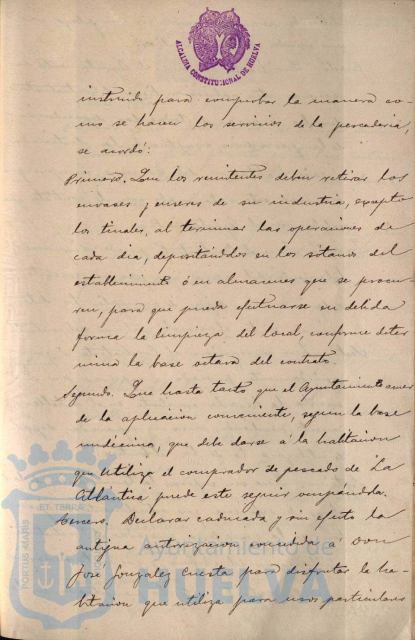 ALCALDIA CONSTITUCIONAL DE HUELVA
instruido para comprobar la manera co-
mo se hacen los servicios de la pescaderia
se acordó:
Primero. Que los remitentes deben retirar los
envases y enseres de su industria, excepto
los tinales, al terminar las operaciones de
cada dia, depositándolos en los sótanos del
establecimiento ó en almacenes que se procu-
ren, para que pueda efectuarse en debida
forma la limpieza del local, conforme deter-
mina la base octava del contrato.
Segundo. Que hasta tanto que el Ayuntamiento acuer-
de la aplicacion conveniente, segun la base
undécima, que debe darse á la habitacion
que utiliza el comprador de pescado de La
Atlántica puede este seguir ocupándola.
Tercero. Declarar caducada y sin efecto la
antigua autorizacion concedida á Don
José Gonzalez Cuesta para disfrutar la ha-
bitacion que utiliza para usos particulares
PORTUS MARIS ET TERRAE
Ayuntamiento de
HUELVA